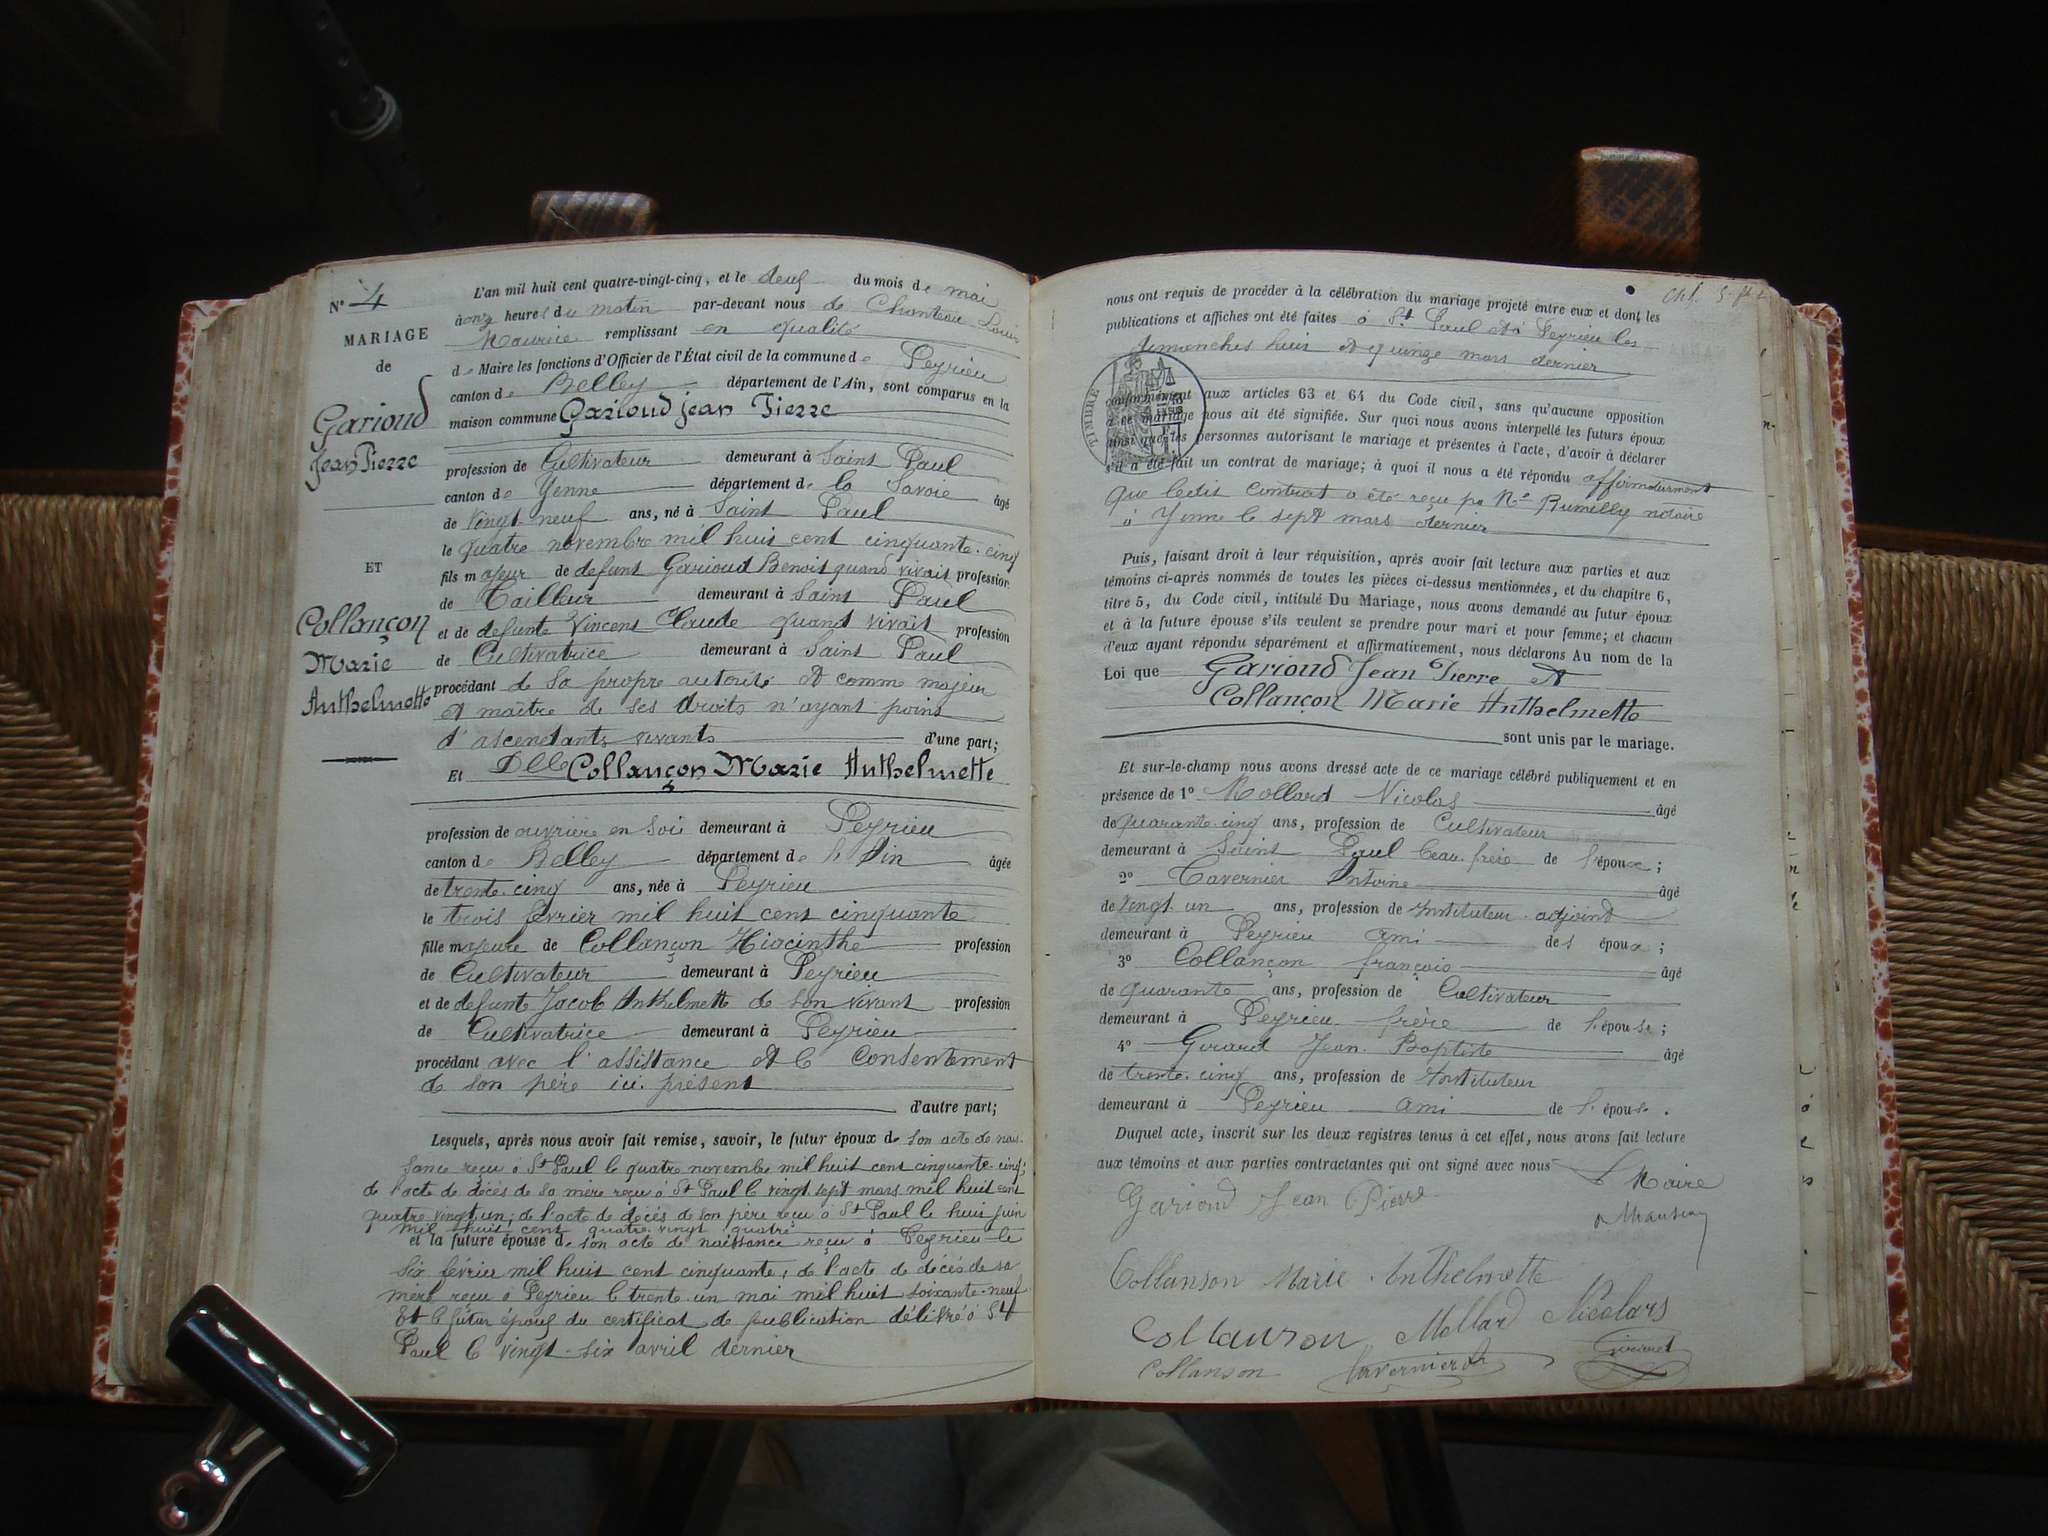 N° 4
MARIAGE
de
Gariond
Jean Pierre
ET
Collançon
Marie
Anthelmette
L'an mil huit cent quatre-vingt-cinq, et le deuf du mois de mai
à onze heures du matin par-devant nous de Chanteau Louis
Maurice remplissant en qualité
de Maire les fonctions d'Officier de l'État civil de la commune de Peyrieu
canton de Belley département de l'Ain, sont comparus en la
maison commune Gariond Jean Pierre
profession de Cultivateur demeurant à Saint Paul
canton de Yenne département de la Savoie âgé
de vingt-neuf ans, né à Saint Paul
le quatre novembre mil huit cent cinquante-cinq
fils majeur de defunt Gariond Benoit quand vivait profession
de Tailleur demeurant à Saint Paul
et de defunte Vincent Claude quand vivait profession
de Cultivatrice demeurant à Saint Paul
procédant de sa propre autorité et comme majeur
et maître de ses droits n'ayant point
d'ascendants vivants d'une part;
Et Dlle Collançon Marie Anthelmette
profession de ouvrière en soie demeurant à Peyrieu
canton de Belley département de l'Ain âgée
de trente-cinq ans, née à Peyrieu
le trois février mil huit cent cinquante
fille majeure de Collançon Hiacinthe profession
de Cultivateur demeurant à Peyrieu
et de defunte Jacob Anthelmette de son vivant profession
de Cultivatrice demeurant à Peyrieu
procédant avec l'assistance et le consentement
de son père ici présent
d'autre part;
Lesquels, après nous avoir fait remise, savoir, le futur époux de son acte de nais-
sance reçu à St Paul le quatre novembre mil huit cent cinquante-cinq;
de l'acte de décés de sa mère reçu à St Paul le vingt sept mars mil huit cent
quatre vingt un; de l'acte de décés de son père reçu à St Paul le huit juin
mil huit cent quatre vingt quatre
et la future épouse de son acte de naissance reçu à Peyrieu le
six février mil huit cent cinquante; de l'acte de décés de sa
mère reçu à Peyrieu le trente-un mai mil huit soixante-neuf
Et le futur époux du certificat de publication délivré à St
Paul le vingt-six avril dernier
nous ont requis de procéder à la célébration du mariage projeté entre eux et dont les
publications et affiches ont été faites à St Paul et à Peyrieu les
dimanches huit et quinze mars dernier
TIMBRE
conformément aux articles 63 et 64 du Code civil, sans qu'aucune opposition
à ce mariage nous ait été signifiée. Sur quoi nous avons interpellé les futurs époux
ainsi que les personnes autorisant le mariage et présentes à l'acte, d'avoir à déclarer
s'il a été fait un contrat de mariage; à quoi il nous a été répondu affirmativement
que ledit contrat a été reçu par Me Rumilly notaire
à Yenne le sept mars dernier
Puis, faisant droit à leur réquisition, après avoir fait lecture aux parties et aux
témoins ci-après nommés de toutes les pièces ci-dessus mentionnées, et du chapitre 6,
titre 5, du Code civil, intitulé Du Mariage, nous avons demandé au futur époux
et à la future épouse s'ils veulent se prendre pour mari et pour femme; et chacun
d'eux ayant répondu séparément et affirmativement, nous déclarons Au nom de la
Loi que Gariond Jean Pierre et
Collançon Marie Anthelmette
sont unis par le mariage.
Et sur-le-champ nous avons dressé acte de ce mariage célébré publiquement et en
présence de 1° Mollard Nicolas âgé
de quarante-cinq ans, profession de Cultivateur
demeurant à Saint Paul beau-frère de l'époux;
2° Tavernier Antoine âgé
de vingt-un ans, profession de Instituteur-adjoint
demeurant à Peyrieu ami des époux;
3° Collançon françois âgé
de quarante ans, profession de Cultivateur
demeurant à Peyrieu frère de l'épouse;
4° Girard Jean-Baptiste âgé
de trente-cinq ans, profession de Instituteur
demeurant à Peyrieu ami de l'épouse.
Duquel acte, inscrit sur les deux registres tenus à cet effet, nous avons fait lecture
aux témoins et aux parties contractantes qui ont signé avec nous
Le Maire
Gariond Jean Pierre
Collanson Marie Anthelmette
Collanson Mollard Nicolas
Collanson Tavernier